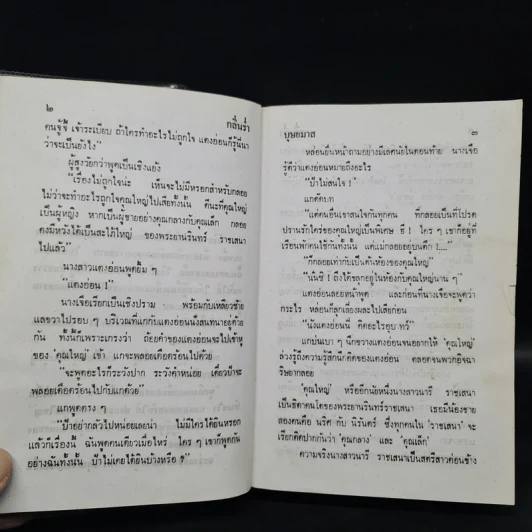 ๒
กลิ่นร่ำ
คนจู้จี้ เจ้าระเบียบ ถ้าใครทำอะไรไม่ถูกใจ แดงอ่อนก็รู้นี่นา
ว่าจะเป็นยังไง”
ผู้สูงวัยกว่าพูดเป็นเชิงแย้ง
“เรื่องไม่ถูกใจน่ะ เห็นจะไม่มีหรอกสำหรับกลอย
ไม่ว่าจะทำอะไรถูกใจคุณใหญ่ไปเสียทั้งนั้น ดีนะที่คุณใหญ่
เป็นผู้หญิง หากเป็นผู้ชายอย่างคุณกลางกับคุณเล็ก กลอย
คงมีหวังได้เป็นสะใภ้ใหญ่ ของพระยานรินทร์ ราชเสนา
ไปแล้ว”
นางสาวแดงอ่อนพูดยิ้ม ๆ
“แดงอ่อน !”
นางเจือเรียกเป็นเชิงปราม พร้อมกับเหลียวซ้าย
แลขวาไปรอบ ๆ บริเวณที่แกกับแดงอ่อนนั่งสนทนาอยู่ด้วย
กัน ทั้งนี้ก็เพราะเกรงว่า ถ้อยคำของแดงอ่อนจะไปเข้าหู
ของ ‘คุณใหญ่’ เข้า แกจะพลอยเดือดร้อนไปด้วย
“จะพูดอะไรก็ระวังปาก ระวังคำหน่อย เดี๋ยวป้าจะ
พลอยเดือดร้อนไปกับแกด้วย”
แกพูดตรง ๆ
“ป้าอย่ากลัวไปหน่อยเลยน่า ไม่มีใครได้ยินหรอก
แล้วก็เรื่องนี้ ฉันพูดคนเดียวเมื่อไหร่ ใคร ๆ เขาก็พูดกัน
อย่างฉันทั้งนั้น ป้าไม่เคยได้ยินบ้างหรือ ?”
บุษยมาส
๓
หล่อนยื่นหน้าถามอย่างมีเลศนัยในตอนท้าย นางเจือ
รู้ดีว่าแดงอ่อนหมายถึงอะไร
“ป้าไม่สนใจ !”
แกตัดบท
“แต่คนอื่นเขาสนใจกันทุกคน ที่กลอยเป็นที่โปรด
ปรานรักใคร่ของคุณใหญ่เป็นพิเศษ ฮึ ! ใคร ๆ เขาก็อยู่ที่
เรือนพักคนใช้กันทั้งนั้น แต่แม่กลอยอยู่บนตึก !....”
“ก็กลอยเท่ากับเป็นต้นห้องของคุณใหญ่”
“นั่นซี ! ถึงได้ขลุกอยู่ในห้องกับคุณใหญ่นาน ๆ”
แดงอ่อนลอยหน้าพูด และก่อนที่นางเจือจะพูดว่า
กระไร หล่อนก็ลุกเลี่ยงผละไปเสียก่อน
“นังแดงอ่อนนี่ คิดอะไรอุบาทว์”
แกบ่นเบา ๆ นึกขวางแดงอ่อนจนอยากให้ ‘คุณใหญ่’
ล่วงรู้ถึงความรู้สึกนึกคิดของแดงอ่อน ตลอดจนพวกอิจฉา
ริษยากลอย
‘คุณใหญ่’ หรืออีกนัยหนึ่งนางสาวนารี ราชเสนา
เป็นธิดาคนโตของพระยานรินทร์ราชเสนา เธอมีน้องชาย
สองคนคือ นริศ กับ นิรันดร์ ซึ่งทุกคนใน ‘ราชเสนา’ จะ
เรียกติดปากกันว่า ‘คุณกลาง’ และ ‘คุณเล็ก’
ความจริงนางสาวนารี ราชเสนาเป็นสตรีสาวค่อนข้าง